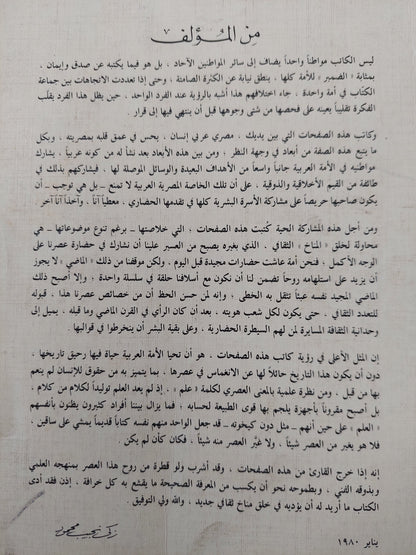 من المؤلف
ليس الكاتب مواطناً واحداً يضاف إلى سائر المواطنين الآحاد ، بل هو فيما يكتبه عن صدق وإيمان ،
بمثابة « الضمير » للأمة كلها ، ينطق نيابة عن الكثرة الصامتة ، وحتى إذا تعددت الاتجاهات بين جماعة
الكتاب في أمة واحدة ، جاء اختلافهم هذا أشبه بالرؤية عند الفرد الواحد ، حين يظل هذا الفرد يقلّب
الفكرة تقليباً يعينه على فحصها من شتى وجوهها قبل أن ينتهي فيها إلى قرار .
وكاتب هذه الصفحات التي بين يديك ، مصري عربي إنسان ، يحس في عمق قلبه بمصريته ، وبكل
ما يتبع هذه الصفة من أبعاد في وجهة النظر ، ومن بين هذه الأبعاد بعد نشأ له من كونه عربياً ، يشارك
مواطنيه في الأمة العربية جانباً واسعاً من الأهداف البعيدة والوسائل الموصلة لها ، فيشاركهم بذلك في
طائفة من القيم الأخلاقية والذوقية ، على أن تلك الخاصة المصرية العربية لا تمنع ـ بل هي توجب ـ أن
يكون صاحبها حريصاً على مشاركة الأسرة البشرية كلها في تقدمها الحضاري ، معطياً آناً ، وآخذاً آناً آخر
ومن أجل هذه المشاركة الحية كُتبت هذه الصفحات ، التي خلاصتها ـ برغم تنوع موضوعاتها ـ هي
محاولة لخلق « المناخ » الثقافي ، الذي بغيره يصبح من العسير علينا أن نشارك في حضارة عصرنا على
الوجه الأكمل ؛ فنحن أمة عاشت حضارات مجيدة قبل اليوم ، ولكن موقفنا من ذلك « الماضي » لا يجوز
أن يزيد على استلهامه روحاً تضمن لنا أن نكون مع أسلافنا حلقة في سلسلة واحدة ، وإلا أصبح ذلك
الماضي المجيد نفسه عبئاً تثقل به الخطى ؛ وإنه لمن حسن الحظ أن من خصائص عصرنا هذا ، قبوله
للتعدد الثقافي ، حتى يكون لكل شعب هويته ، بعد أن كان الرأي في القرن الماضي وما قبله ، يميل إلى
وحدانية الثقافة المسايرة لمن لهم السيطرة الحضارية ، وعلى بقية البشر أن ينخرطوا في قوالبها .
إن المثل الأعلى في رؤية كاتب هذه الصفحات ، هو أن تحيا الأمة العربية حياة فيها رحيق تاريخها ،
دون أن يكون هذا التاريخ حائلاً لها عن الانغماس في عصرها ، بما يتميز به من حقوق للإنسان لم ينعم
بها من قبل ، ومن نظرة علمية بالمعنى العصري لكلمة « علم » . إذ لم يعد العلم توليداً لكلام من كلام ،
بل أصبح مقروناً بأجهزة يلجم بها قوى الطبيعة لحسابه ، فما يزال بيننا أفراد كثيرون يظنون بأنفسهم
« العلم » على حين أنهم ـ مثل دون كيخوته ـ قد جعل الواحد منهم نفسه كتاباً قديماً يمشي على ساقين ،
فلا هو يغير من العصر شيئاً ، ولا غيَّر العصر منه شيئاً ، فكان كأن لم يكن .
إنه إذا خرج القارئ من هذه الصفحات ، وقد أشرب ولو قطرة من روح هذا العصر بمنهجه العلمي
وبذوقه الفني ، وبطموحه نحو أن يكسب من المعرفة الصحيحة ما يشفع به كل خرافة ، إذن فقد أدى
الكتاب ما أريد له أن يؤديه في خلق مناخ ثقافي جديد ، والله ولي التوفيق .
زكي نجيب محمود
يناير ١٩٨٠